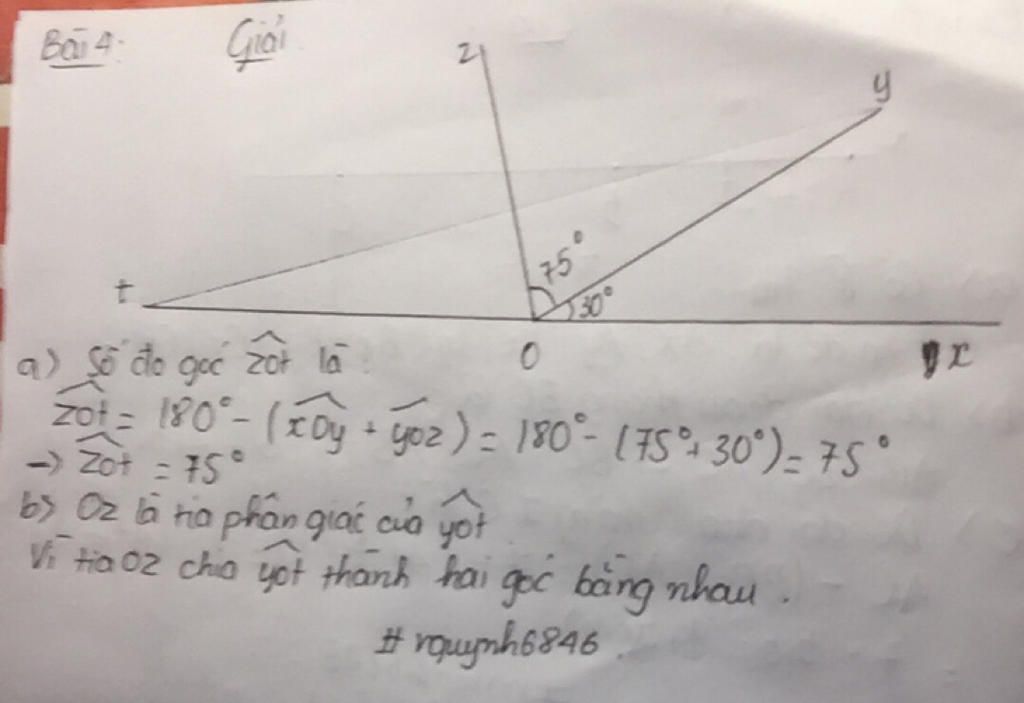 Bài 4: Giải
z
y
75°
30°
t
O
x
a) Số đo góc zOt là:
zOt = 180° - (xOy + yOz) = 180° - (75° + 30°) = 75°
-> zOt = 75°
b) Oz là tia phân giác của yOt
Vì tia Oz chia yOt thành hai góc bằng nhau.
# nquynh6846.